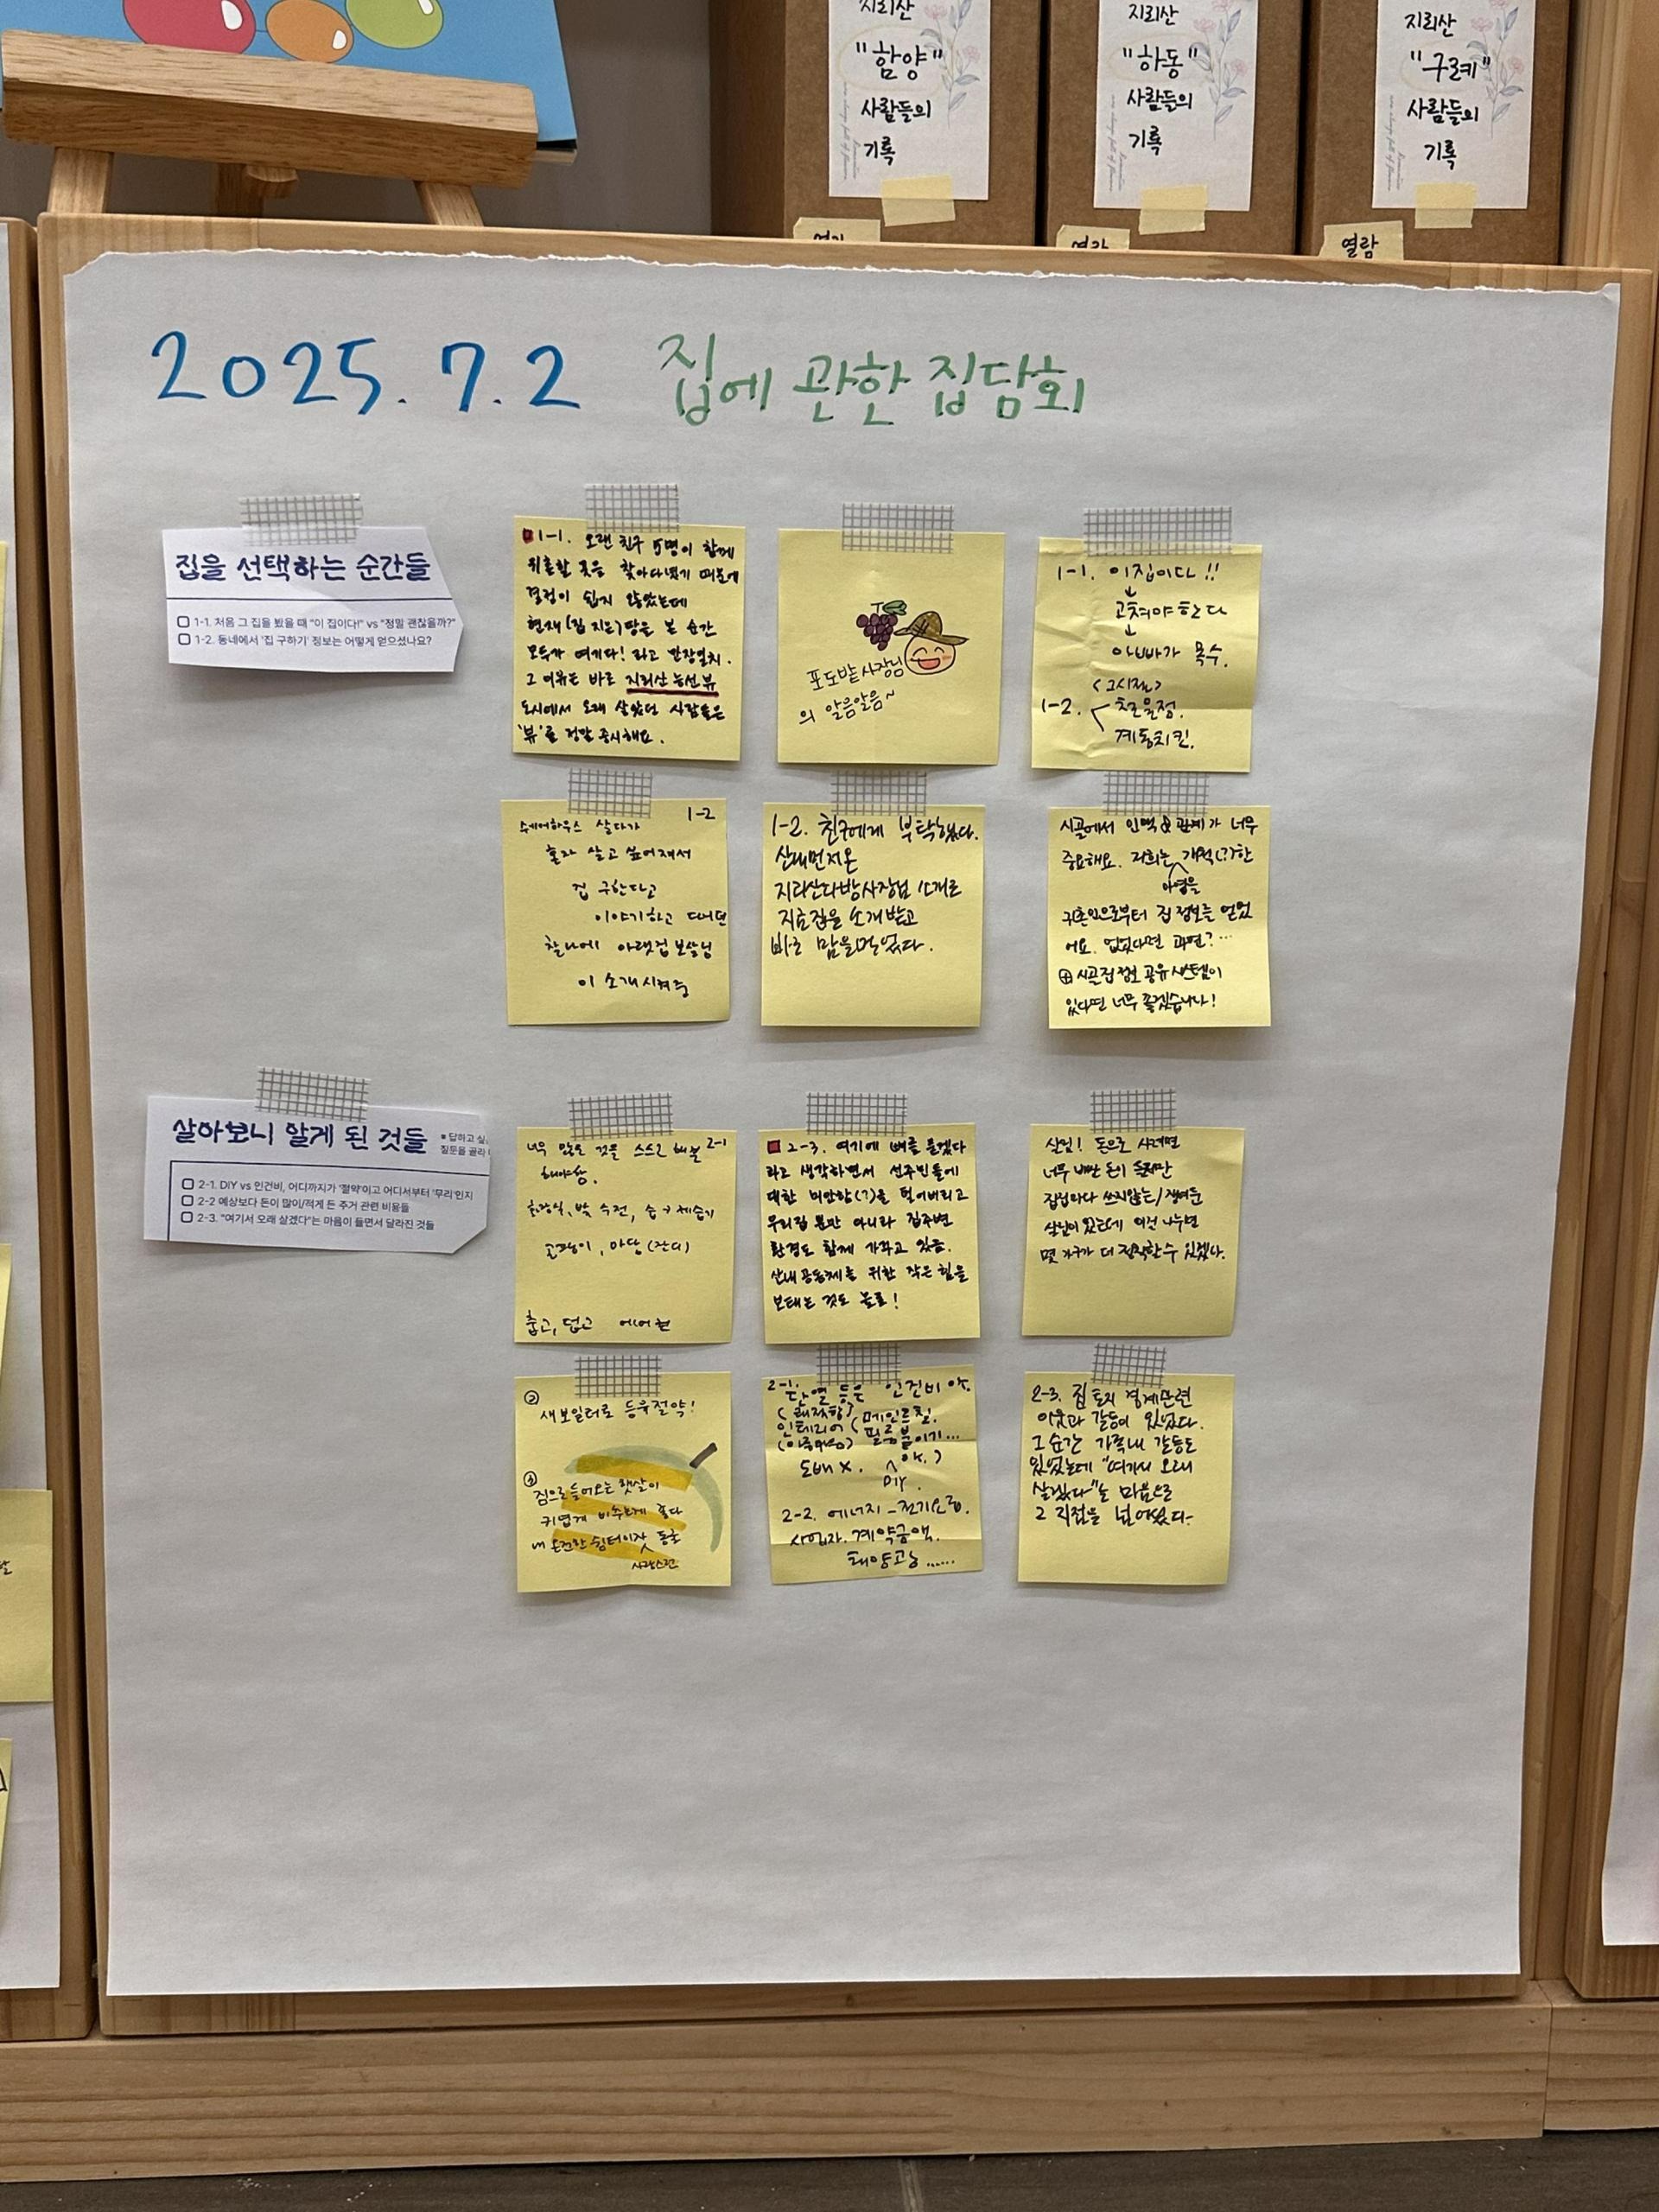 지리산
"함양"
사람들의
기록
지리산
"하동"
사람들의
기록
지리산
"구례"
사람들의
기록
열람
2025.7.2 집에 관한 집담회
집을 선택하는 순간들
1-1. 처음 그 집을 봤을 때 "이 집이다!" vs "정말 괜찮을까?"
1-2. 동네에서 '집 구하기' 정보는 어떻게 얻으셨나요?
1-1. 오랜 친구 5명이 함께
귀촌할 곳을 찾아다녔기 때문에
결정이 쉽지 않았는데
현재(집 지은)땅을 본 순간
모두가 여기다! 라고 만장일치.
그 이유는 바로 지리산 능선뷰
도시에서 오래 살았던 사람들은
'뷰'를 정말 중시해요.
포도밭 사장님
의 알음알음~
1-1. 이집이다!!
고쳐야 한다
아빠가 목수.
1-2.
<그시절>
계동치킨.
1-2
쉐어하우스 살다가
혼자 살고 싶어져서
집 구한다고
이야기하고 다니던
찰나에 아랫집 보살님
이 소개시켜줌
1-2. 친구에게 부탁했다.
산내먼저온
지리산다방사장님 소개로
지효집을 소개받고
바로 맘을먹었다.
시골에서 인맥 & 관계가 너무
중요해요. 저희는 개척(?)한
마을을
귀촌인으로부터 집 정보를 얻었
어요. 없었다면 과연?...
⊕ 시골집 정보 공유 시스템이
있다면 너무 좋겠습니다!
살아보니 알게 된 것들
※ 답하고 싶
질문을 골라
2-1. DIY vs 인건비, 어디까지가 '절약'이고 어디서부터 '무리'인지
2-2 예상보다 돈이 많이/적게 든 주거 관련 비용들
2-3. "여기서 오래 살겠다"는 마음이 들면서 달라진 것들
2-1
너무 많은 것을 스스로 해볼
해야함.
화장실, 밖 수전, 습→제습기
곰팡이, 마당 (잔디)
춥고, 덥고 에어컨
2-3. 여기에 뼈를 묻겠다
라고 생각하면서 선주민들에
대한 미안함(?)을 털어버리고
우리집 뿐만 아니라 집주변
환경도 함께 가꾸고 있음.
산내 공동체를 위한 작은 힘을
보태는 것도 물론!
살림! 돈으로 사려면
너무 비싼 돈이 들지만
집집마다 쓰지않는/쟁여둔
살림이 있는데 이걸 나누면
몇 가구가 더 정착할 수 있겠다.
②
새보일러로 등유절약!
집으로 들어오는 햇살이
귀엽게 비추는게 좋다
내 온전한 쉼터이자 동굴
2-1. 단열 등은 인건비 OK.
인테리어 (페인트칠.
필름붙이기...
도배 X. OK.)
DIY.
2-2. 에너지 - 전기요금.
사업자. 계약금액.
태양고능......
2-3. 집 토지 경계관련
이웃과 갈등이 있었다.
그 순간 가족내 갈등도
있었는데 "여기서 오래
살겠다"는 마음으로
그 직전을 넘어섰다-